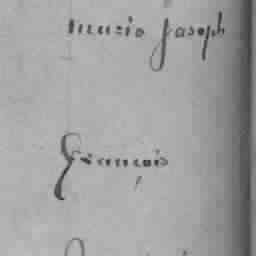 muzio Joseph
François